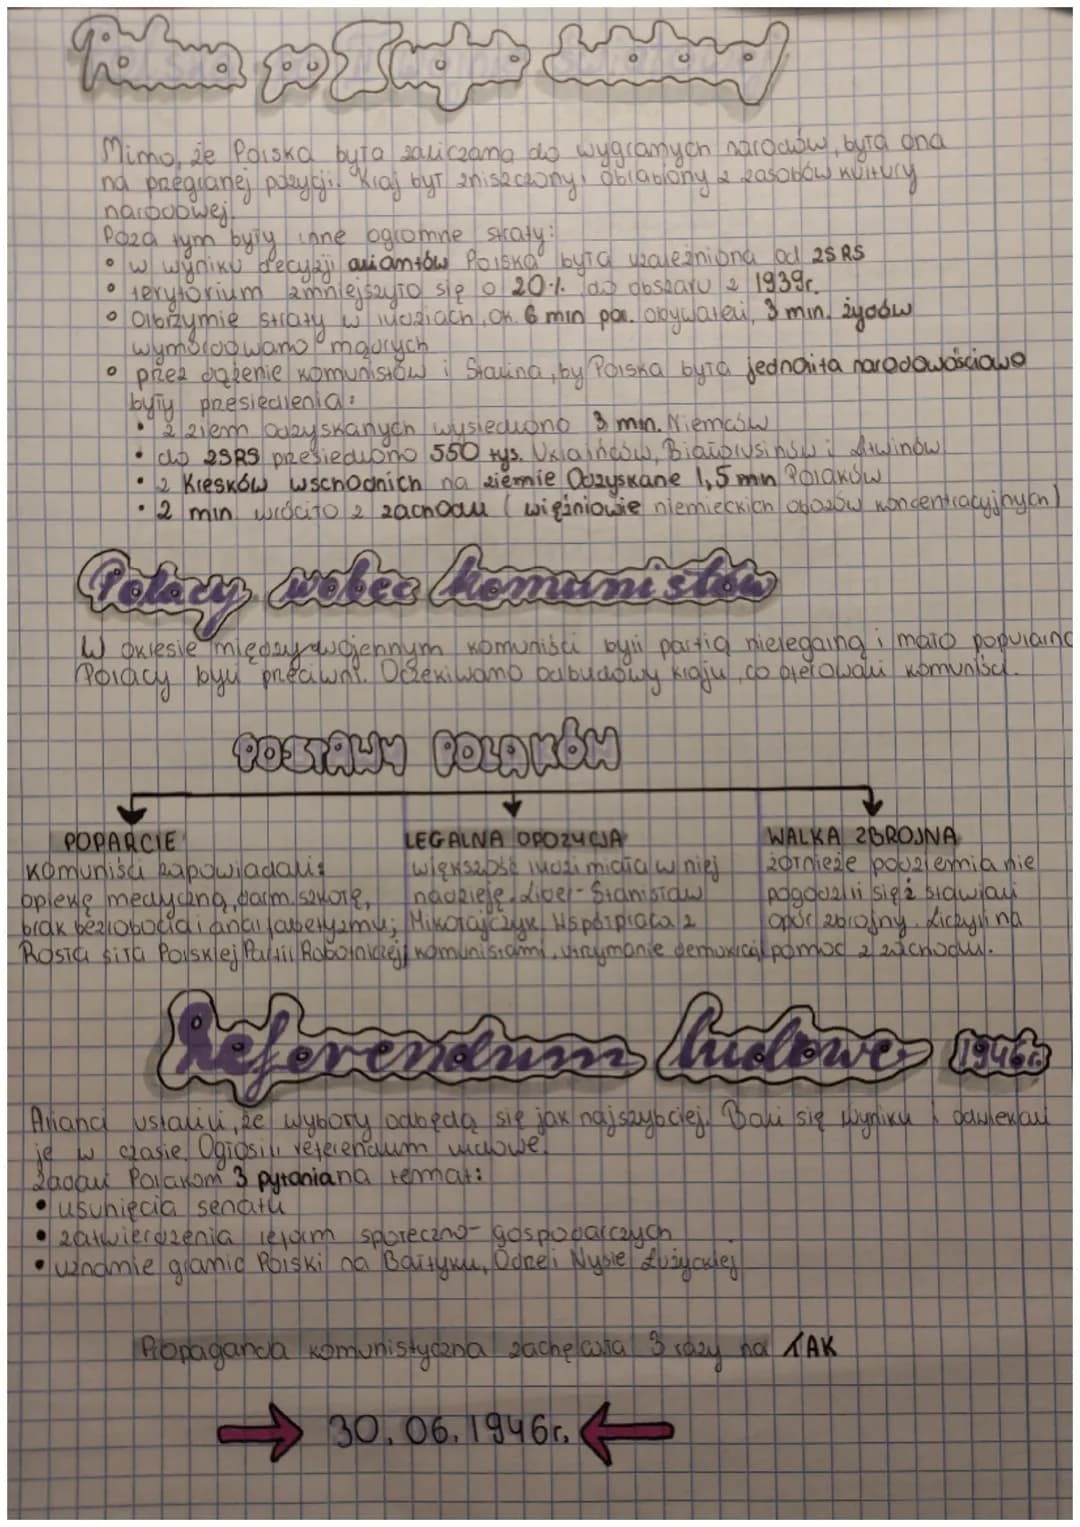 Polska po II wojnie światowej
Mimo, że Polska była zaliczana do wygranych narodów, była ona
na przegranej pozycji. Kraj był zniszczony, obrabiony z zasobów kultury
narodowej.
Poza tym były inne ogromne straty:
• w wyniku decyzji aliantów Polska była uzależniona od ZSRS
• terytorium zmniejszyło się o 20% do obszaru z 1939r.
• Olbrzymie straty w ludziach, ok. 6 mln pol. obywateli, 3 mln. żydów
wymordowano mądrych
• przez dążenie komunistów i Stalina, by Polska była jednolita narodowościowo
były przesiedlenia:
• z ziem odzyskanych wysiedlono 3 mln. Niemców
• do ZSRS przesiedlono 550 tys. Ukraińców, Białorusinów i Litwinów
• z Kresków wschodnich na ziemie Odzyskane 1,5 mln Polaków
• 2 mln wróciło z zachodu (więźniowie niemieckich obozów koncentracyjnych)
Polacy wobec komunistów
W okresie międzywojennym komuniści byli partią nielegalną i mało popularną
Polacy byli przeciwni. Oczekiwano odbudowy kraju, co oferowali komuniści.
POSTAWY POLAKÓW
POPARCIE LEGALNA OPOZYCJA WALKA ZBROJNA
komuniści zapowiadali: większość ludzi miała w niej żołnierze podziemia nie
opiekę medyczną, darm. szkołę, nadzieję. Lider - Stanisław pogodzili się i stawiali
brak bezrobocia i analfabetyzmu; Mikołajczyk. Współpraca z opór zbrojny. Liczyli na
Rosła siła Polskiej Partii Robotniczej komunistami, utrzymanie demokracji pomoc z zachodu.
Referendum ludowe 1946r.
Alianci ustalili, że wybory odbędą się jak najszybciej. Bali się wyniku i odwlekali
je w czasie. Ogłosili referendum ludowe.
Zadali Polakom 3 pytania na temat:
• usunięcia senatu
• zatwierdzenia reform społeczno-gospodarczych
• uznanie granic Polski na Bałtyku, Odrze i Nysie Łużyckiej
Propaganda komunistyczna zachęcała 3 razy na TAK
30.06.1946r.